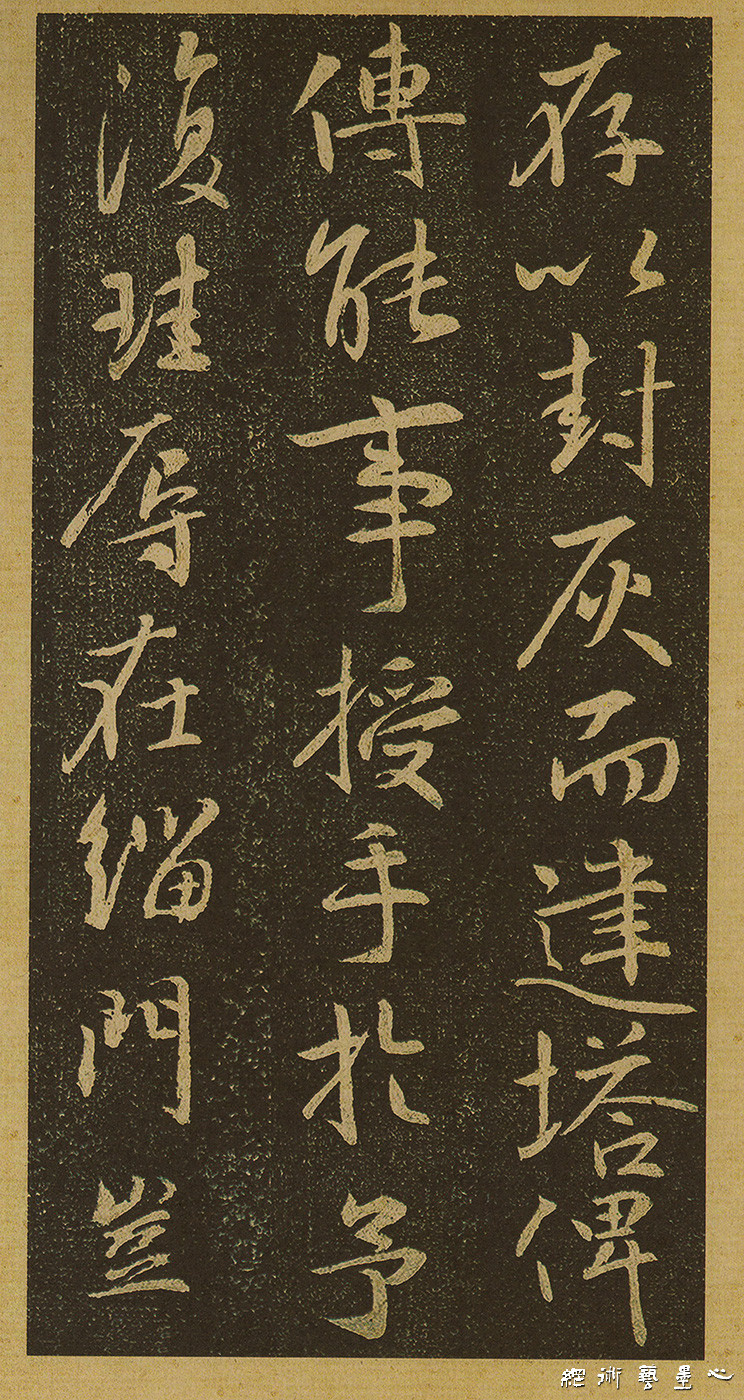 存以封灰而建塔俾
傳能事授手於予
復珪辱在緇門豈
心墨藝術網